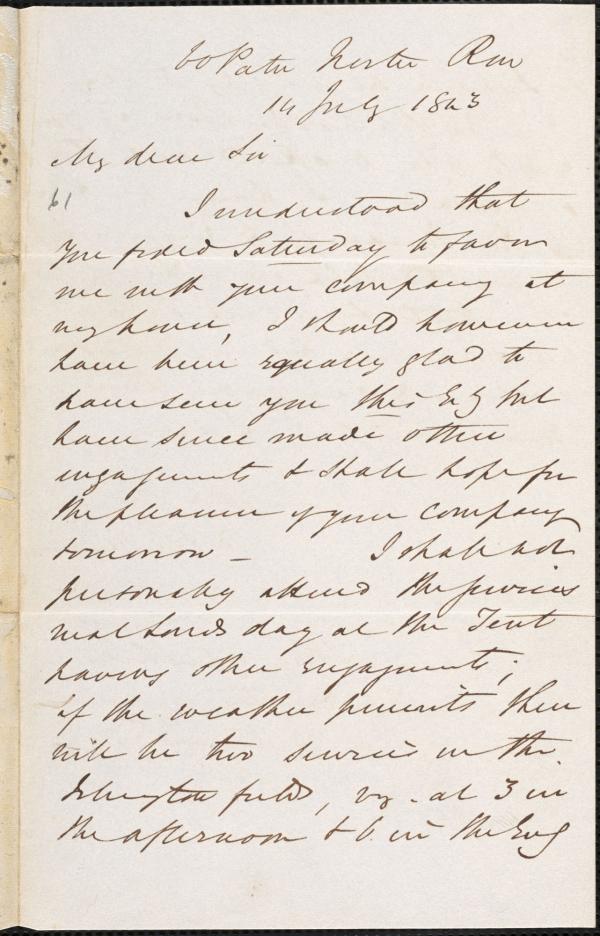 60 Pater Noster Row
14 July 1843
My dear Sir
61
I understood that
you fixed Saturday to favor
me with your company at
my house, I should however
have been equally glad to
have seen you this Evg but
have since made other
engagements & shall hope for
the pleasure of your company
tomorrow – I shall not
personally attend the services
next Lords day at the Tent
having other engagements;
if the weather permits there
will be two services in the
Islington fields, viz. at 3 in
the afternoon & 6 in the Evg